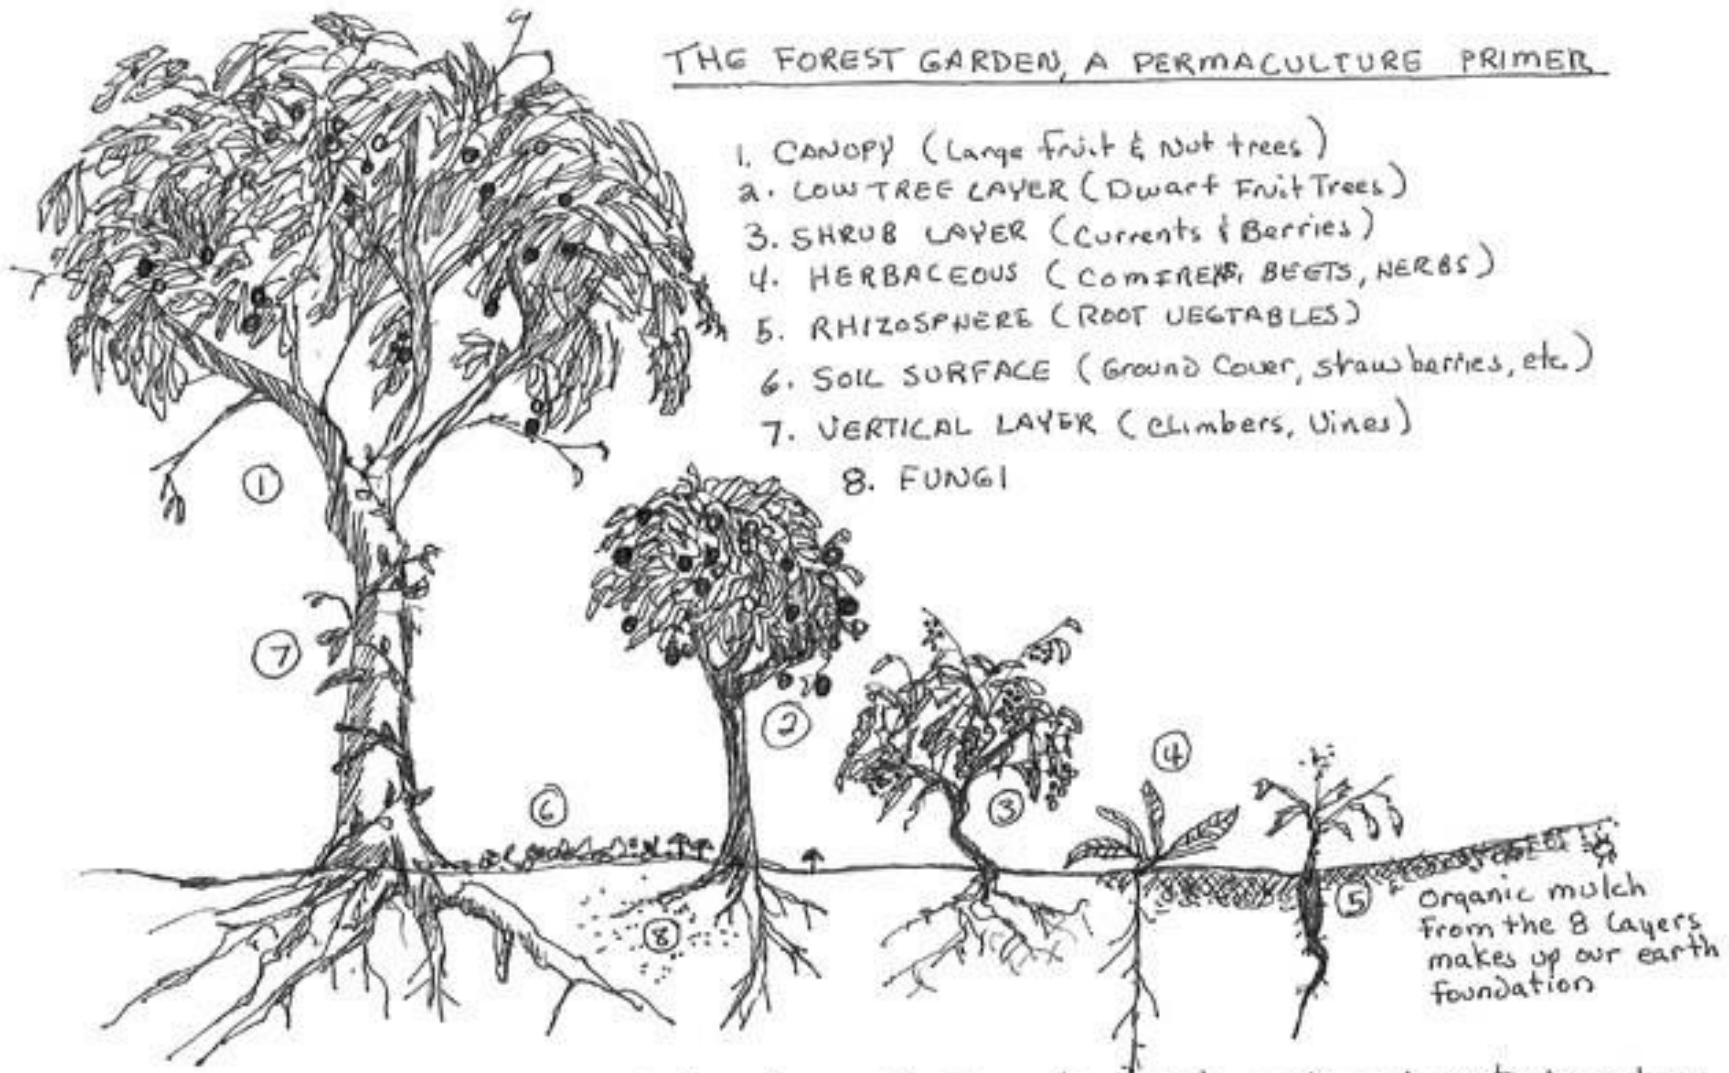 THE FOREST GARDEN, A PERMACULTURE PRIMER
1. CANOPY (Large fruit & Nut trees)
2. LOW TREE LAYER (Dwarf Fruit Trees)
3. SHRUB LAYER (Currents & Berries)
4. HERBACEOUS (COMFREYS, BEETS, HERBS)
5. RHIZOSPHERE (ROOT VEGTABLES)
6. SOIL SURFACE (Ground Cover, strawberries, etc.)
7. VERTICAL LAYER (climbers, Vines)
8. FUNGI
1
7
2
4
6
3
5
8
Organic mulch
from the 8 layers
makes up our earth
foundation